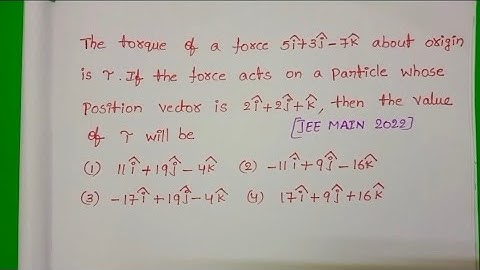 The torque of a force 5î+3ĵ-7k̂ about origin
is τ. If the force acts on a Particle whose
Position vector is 2î+2ĵ+k̂, then the value
of τ will be [JEE MAIN 2022]
(1) 11î+19ĵ-4k̂ (2) -11î+9ĵ-16k̂
(3) -17î+19ĵ-4k̂ (4) 17î+9ĵ+16k̂